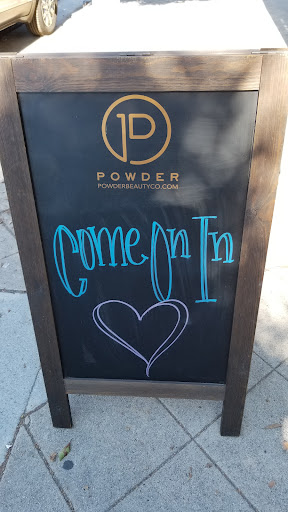 P
POWDER
POWDERBEAUTYCO.COM
Come On In